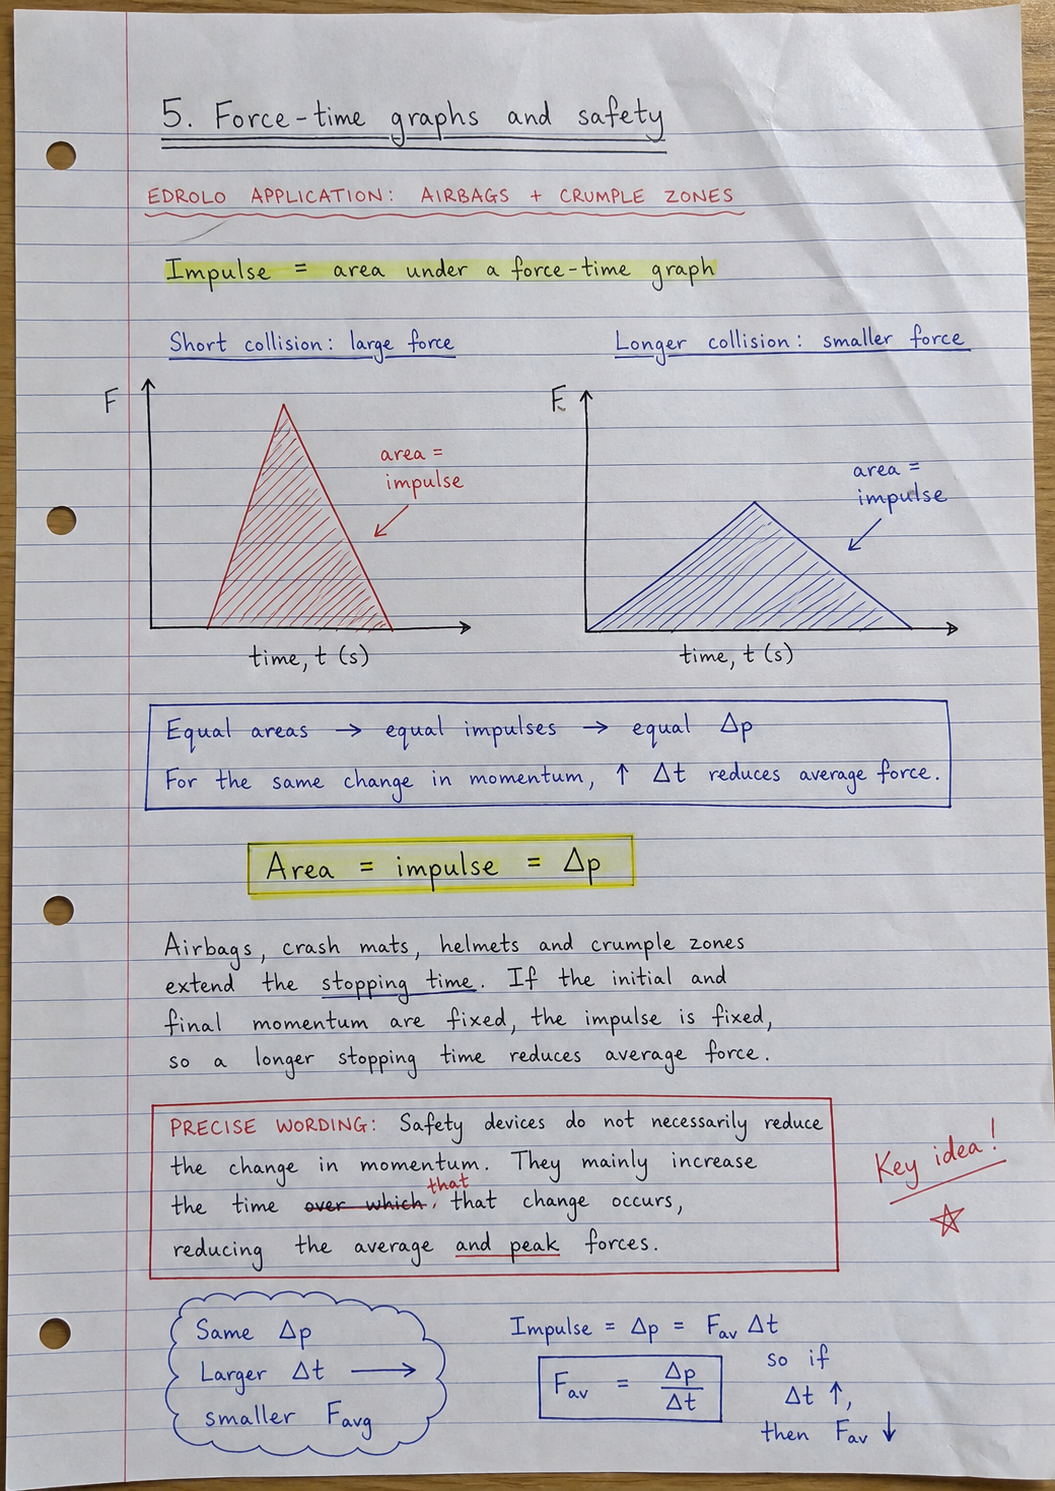 5. Force-time graphs and safety
EDROLO APPLICATION: AIRBAGS + CRUMPLE ZONES
Impulse = area under a force-time graph
Short collision: large force
F
area =
impulse
time, t (s)
Longer collision: smaller force
F
area =
impulse
time, t (s)
Equal areas → equal impulses → equal Δp
For the same change in momentum, ↑ Δt reduces average force.
Area = impulse = Δp
Airbags, crash mats, helmets and crumple zones
extend the stopping time. If the initial and
final momentum are fixed, the impulse is fixed,
so a longer stopping time reduces average force.
PRECISE WORDING: Safety devices do not necessarily reduce
the change in momentum. They mainly increase
that
the time over which, that change occurs,
reducing the average and peak forces.
Key idea!
Same Δp
Larger Δt →
smaller Favg
Impulse = Δp = Fav Δt
Fav = Δp/Δt
so if
Δt ↑,
then Fav ↓